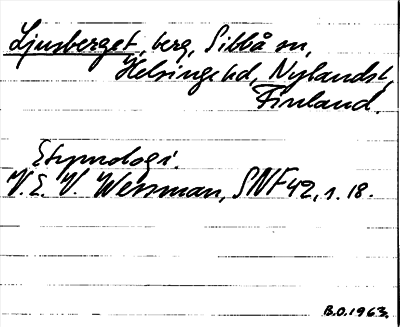 Ljusberget, berg, Sibbå sn,
Helsinge hd, Nylandsl,
Finland.
Etymologi.
V. E. V. Wessman, SNF 42, 1. 18.
B.O. 1963.